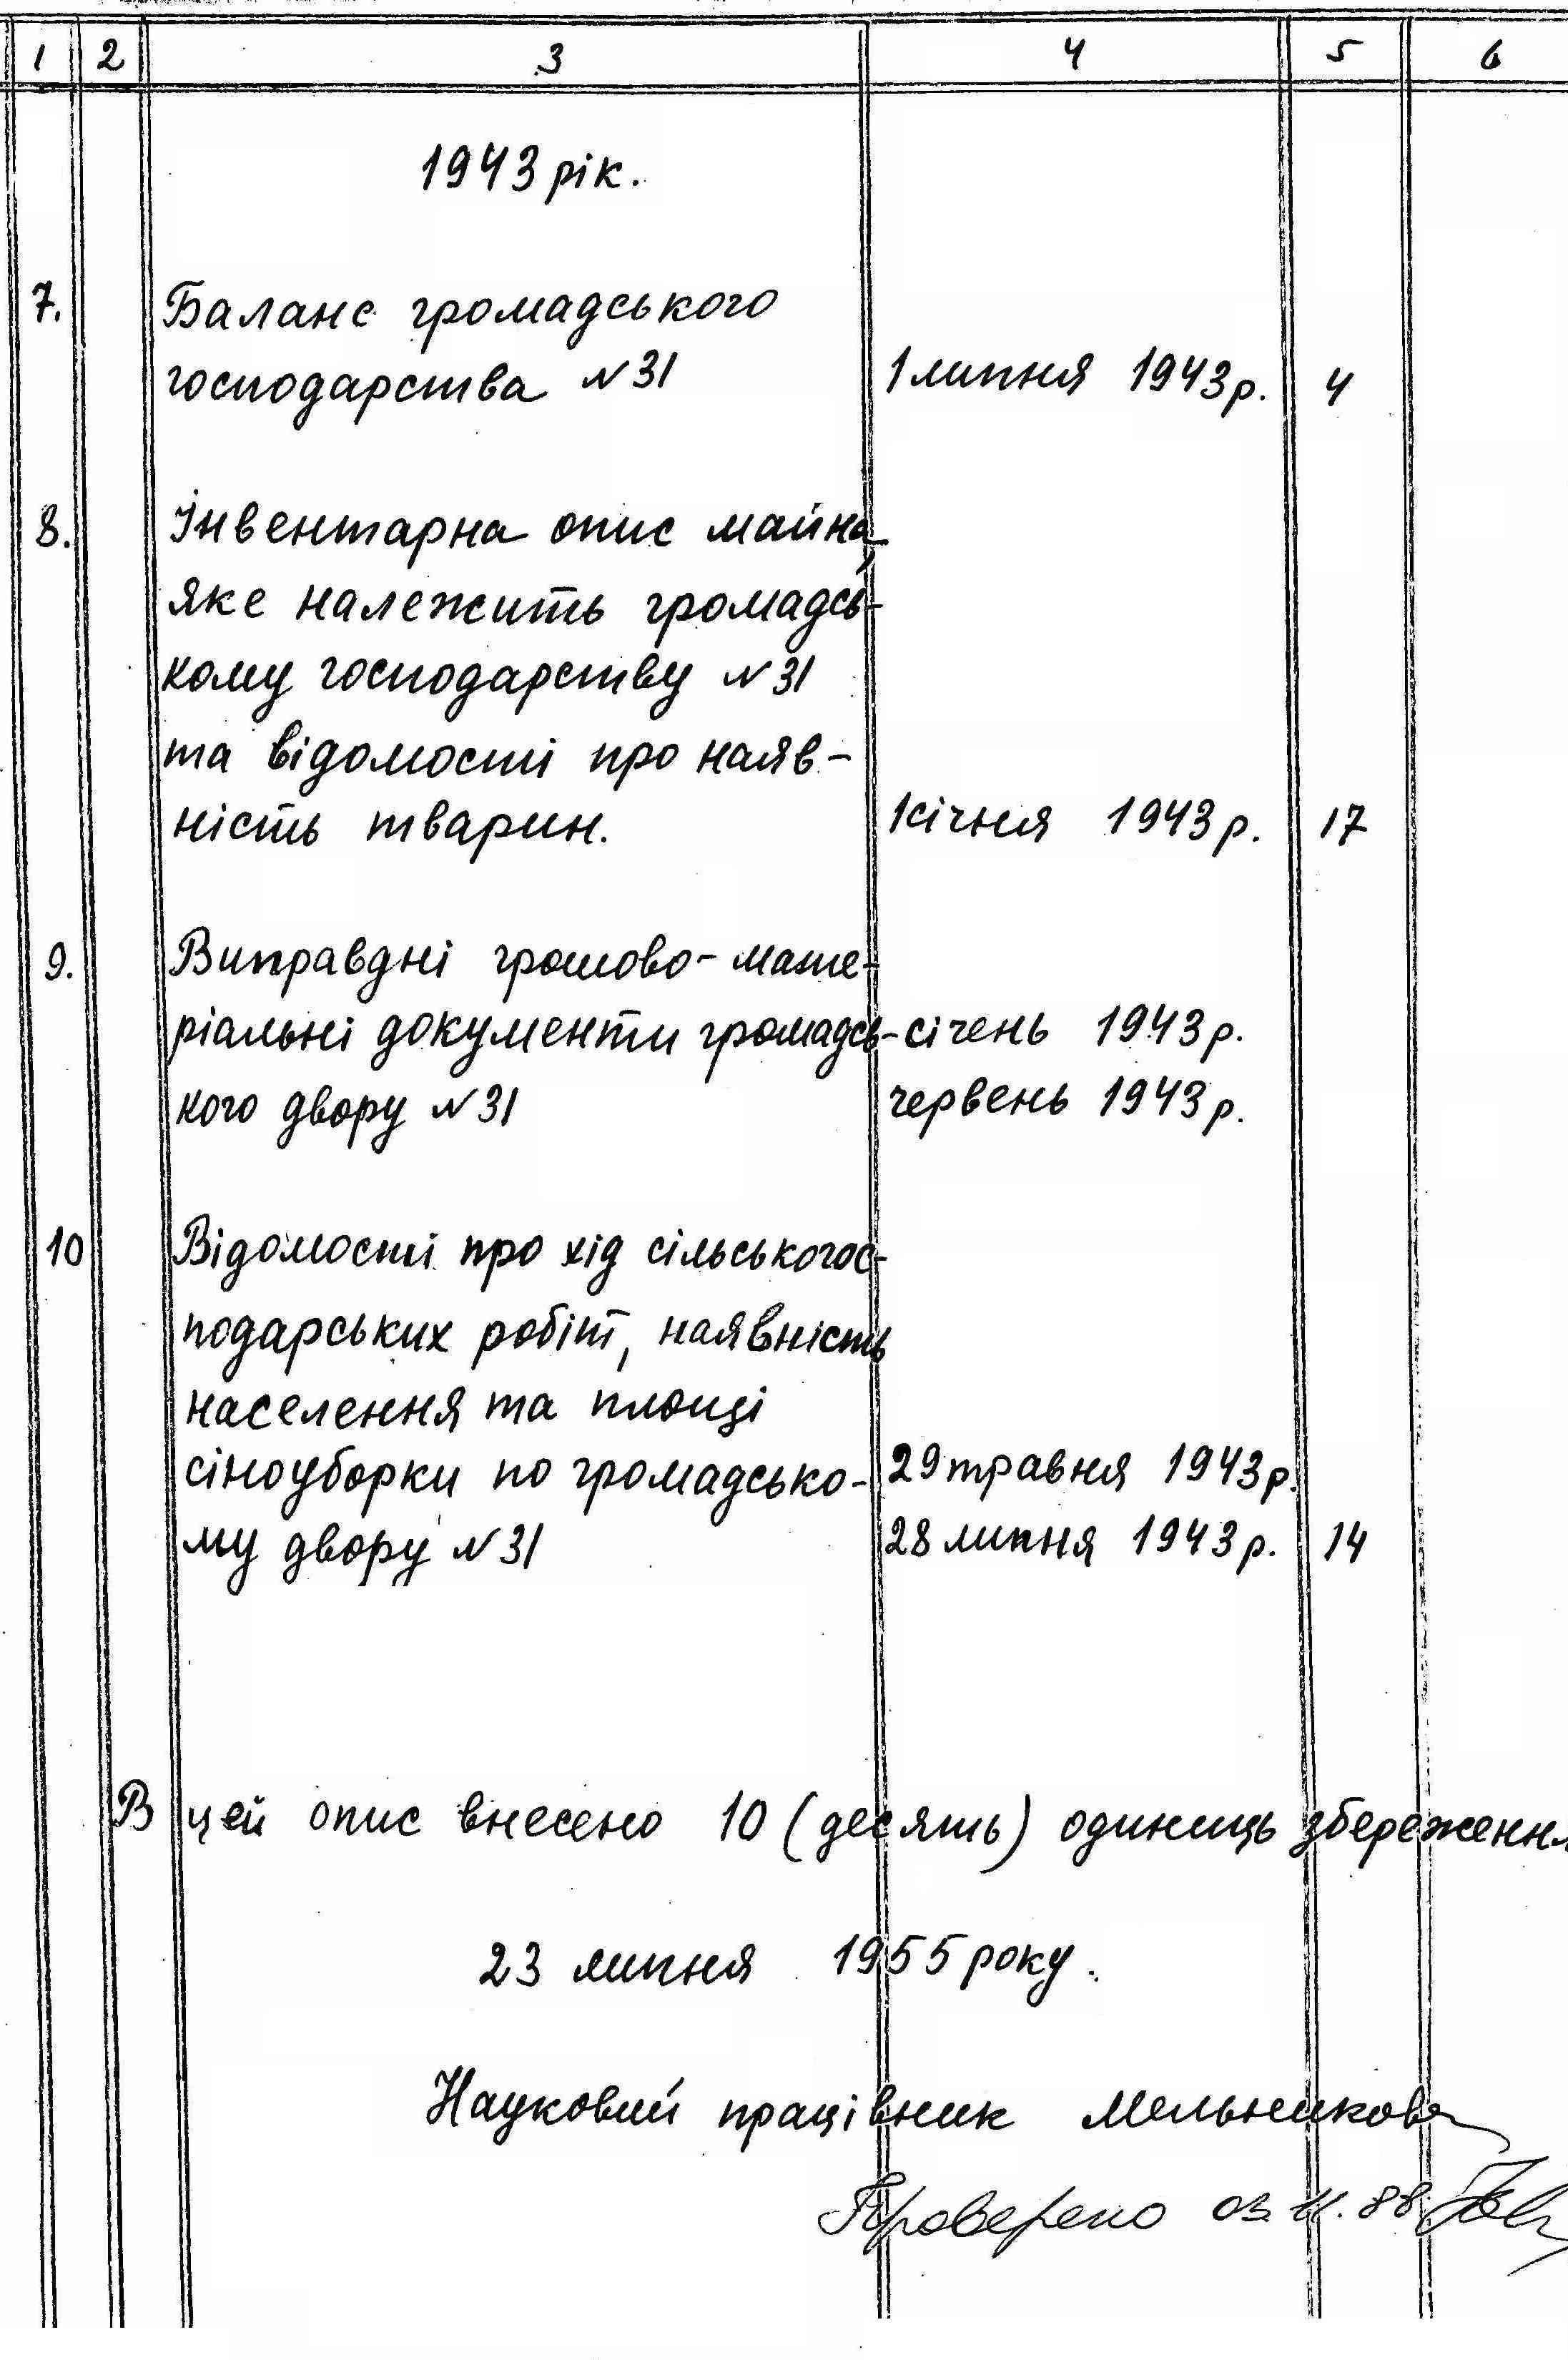 1 2 3 4 5 6
1943 рік.
7. Баланс громадського
господарства N 31 1 липня 1943 р. 4
8. Інвентарна опис майна,
яке належить громадсь-
кому господарству N 31
та відомості про наяв-
ність тварин. 1 січня 1943 р. 17
9. Виправдні грошово-мате-
ріальні документи громадсь- січень 1943 р.
кого двору N 31 червень 1943 р.
10 Відомості про хід сільськогос-
подарських робіт, наявність
населення та площі
сіноуборки по громадсько- 29 травня 1943 р.
му двору N 31 28 липня 1943 р. 14
В цей опис внесено 10 (десять) одиниць збереження
23 липня 1955 року.
Науковий працівник Мельникова
Проверено 03.11.88